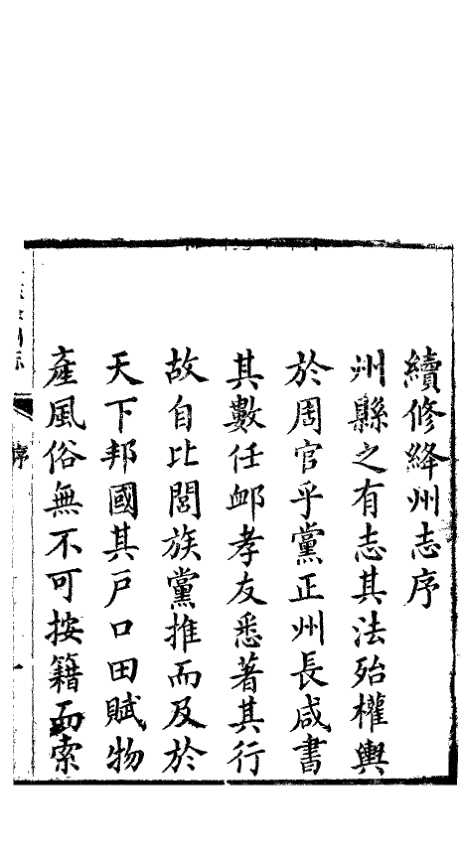 續修絳州志序
州縣之有志其法殆權輿
於周官乎黨正州長咸書
其數任卹孝友悉著其行
故自比閭族黨推而及於
天下邦國其戸口田賦物
產風俗無不可按籍而索
序
一